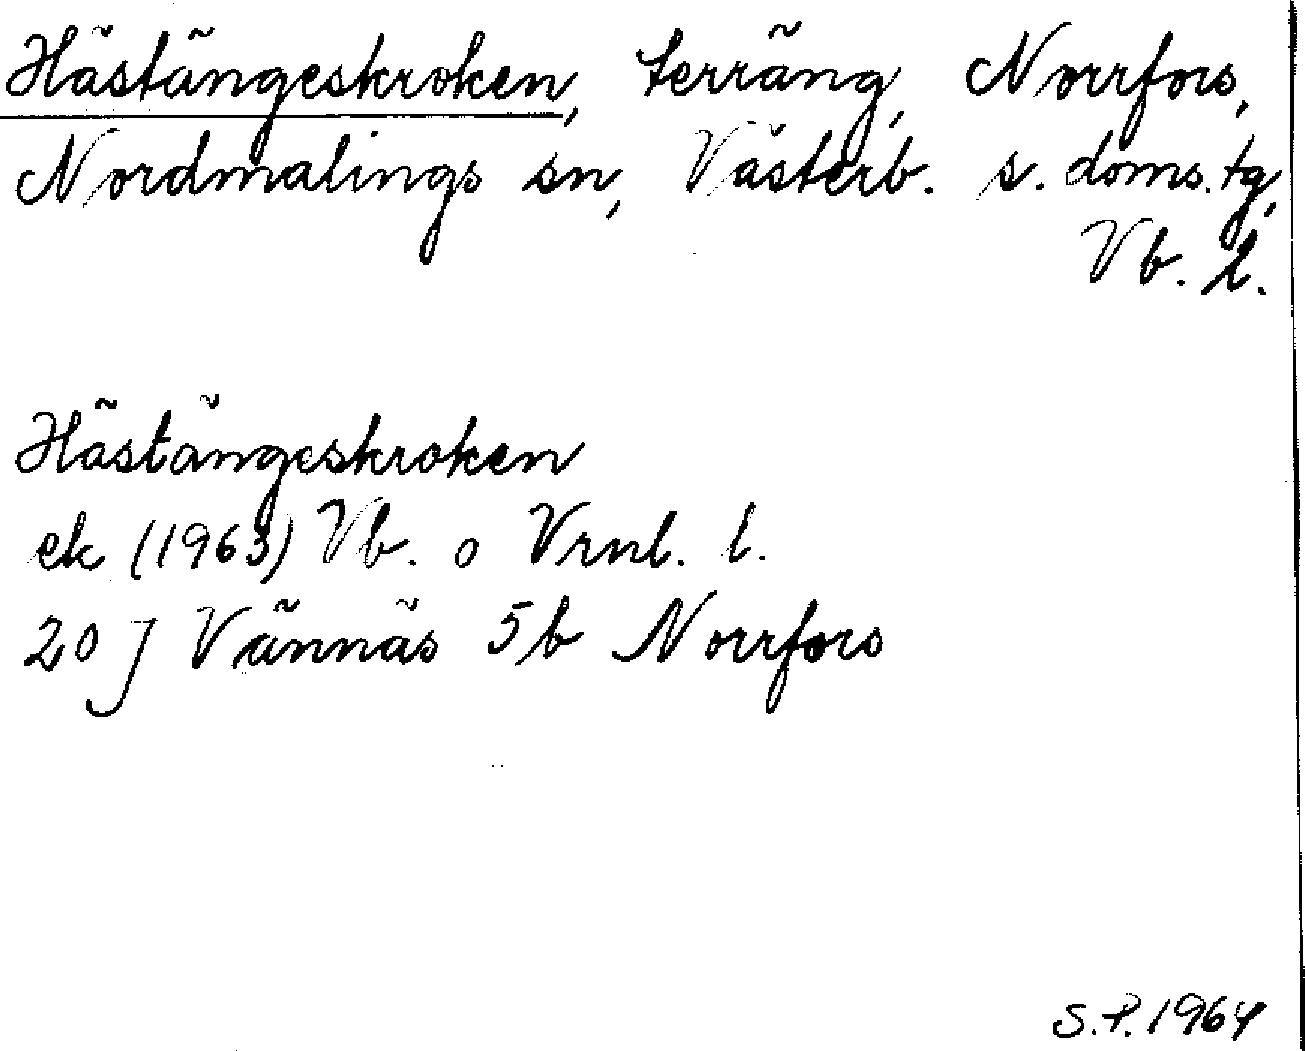 Hästängeskroken, terräng, Norrfors,
Nordmalings sn, Västerb. s. doms.tg,
Vb. l.
Hästängeskroken
ek (1963) Vb. o Vrnl. l.
20 J Vännäs 5b Norrfors
S.P. 1964